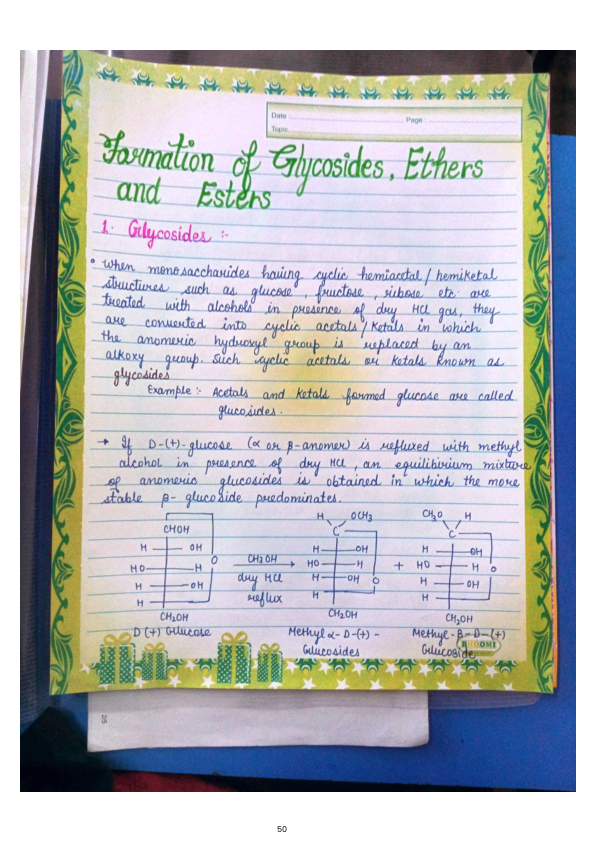 Date :
Page :
Topic
Formation of Glycosides, Ethers
and Esters
1. Glycosides :-
• When monosaccharides having cyclic hemiacetal / hemiketal
structures such as glucose, fructose, ribose etc. are
treated with alcohols in presence of dry HCl gas, they
are converted into cyclic acetals / Ketals in which
the anomeric hydroxyl group is replaced by an
alkoxy group. Such cyclic acetals or ketals known as
glycosides
Example :- Acetals and Ketals formed glucose are called
glucosides.
→ If D-(+)-glucose (α or β-anomer) is refluxed with methyl
alcohol in presence of dry HCl, an equilibirium mixture
of anomeric glucosides is obtained in which the more
stable β- glucoside predominates.
H OCH3 CH3O H
CHOH C C
H OH H OH H OH
HO H O CH3OH HO H + HO H O
H OH dry HCl H OH O H OH
H reflux H H
CH2OH CH2OH CH2OH
D (+) Glucose Methyl α-D-(+)- Methyl-β-D-(+)
Glucosides Glucoside
BHOOMI
26
50